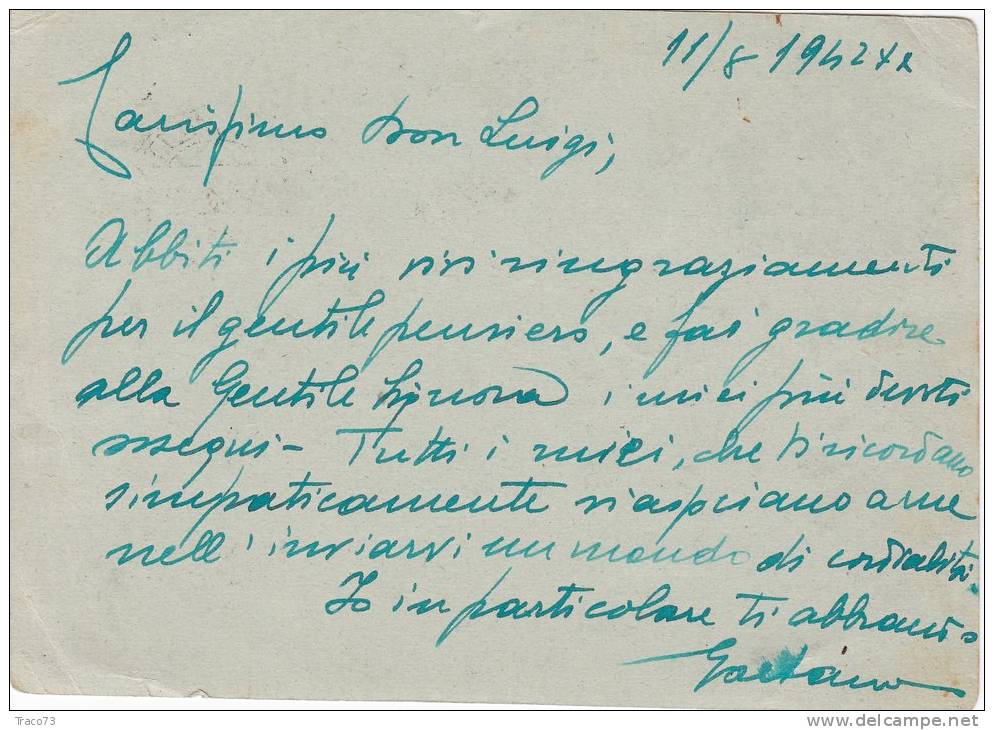 11/8 1942 XX
Carissimo Don Luigi,
Abbiti i più vivi ringraziamenti
per il gentile pensiero, e fai gradire
alla Gentile Signora i miei più devoti
ossequi - Tutti i miei, che ti ricordano
simpaticamente si associano a me
nell'inviarvi un mondo di cordialità.
Io in particolare ti abbraccio
Gaetano
Traco73
delcampe.net